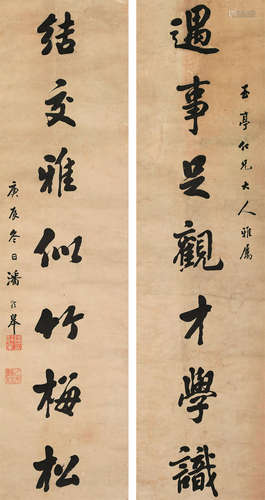 玉亭仁兄大人雅属
遇事足觀才學識
結交雅似竹梅松
庚辰冬日潘齡皋